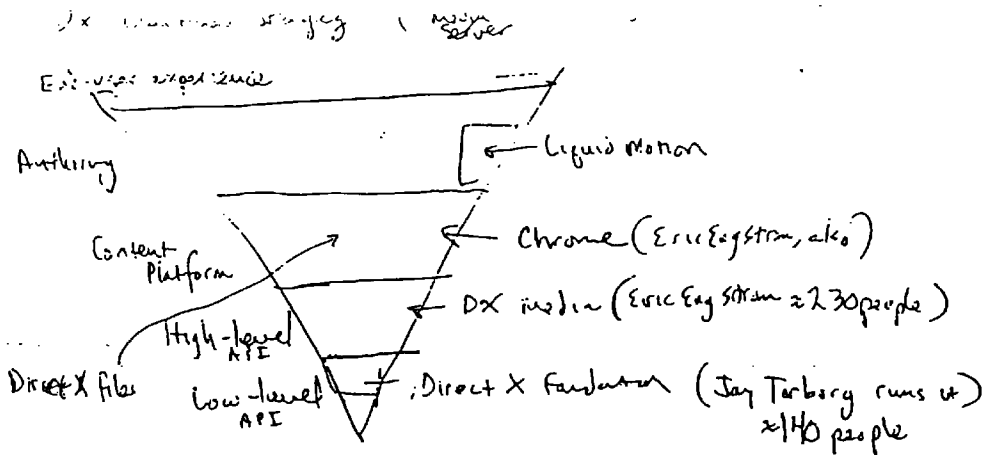 Server
End-user experience
Authoring
Liquid Motion
Content
Platform
Chrome (Eric Engstrom, also)
DX media (Eric Engstrom ≈230 people)
High-level
API
DirectX files
Low-level
API
Direct X Foundation (Jay Torborg runs it)
≈140 people